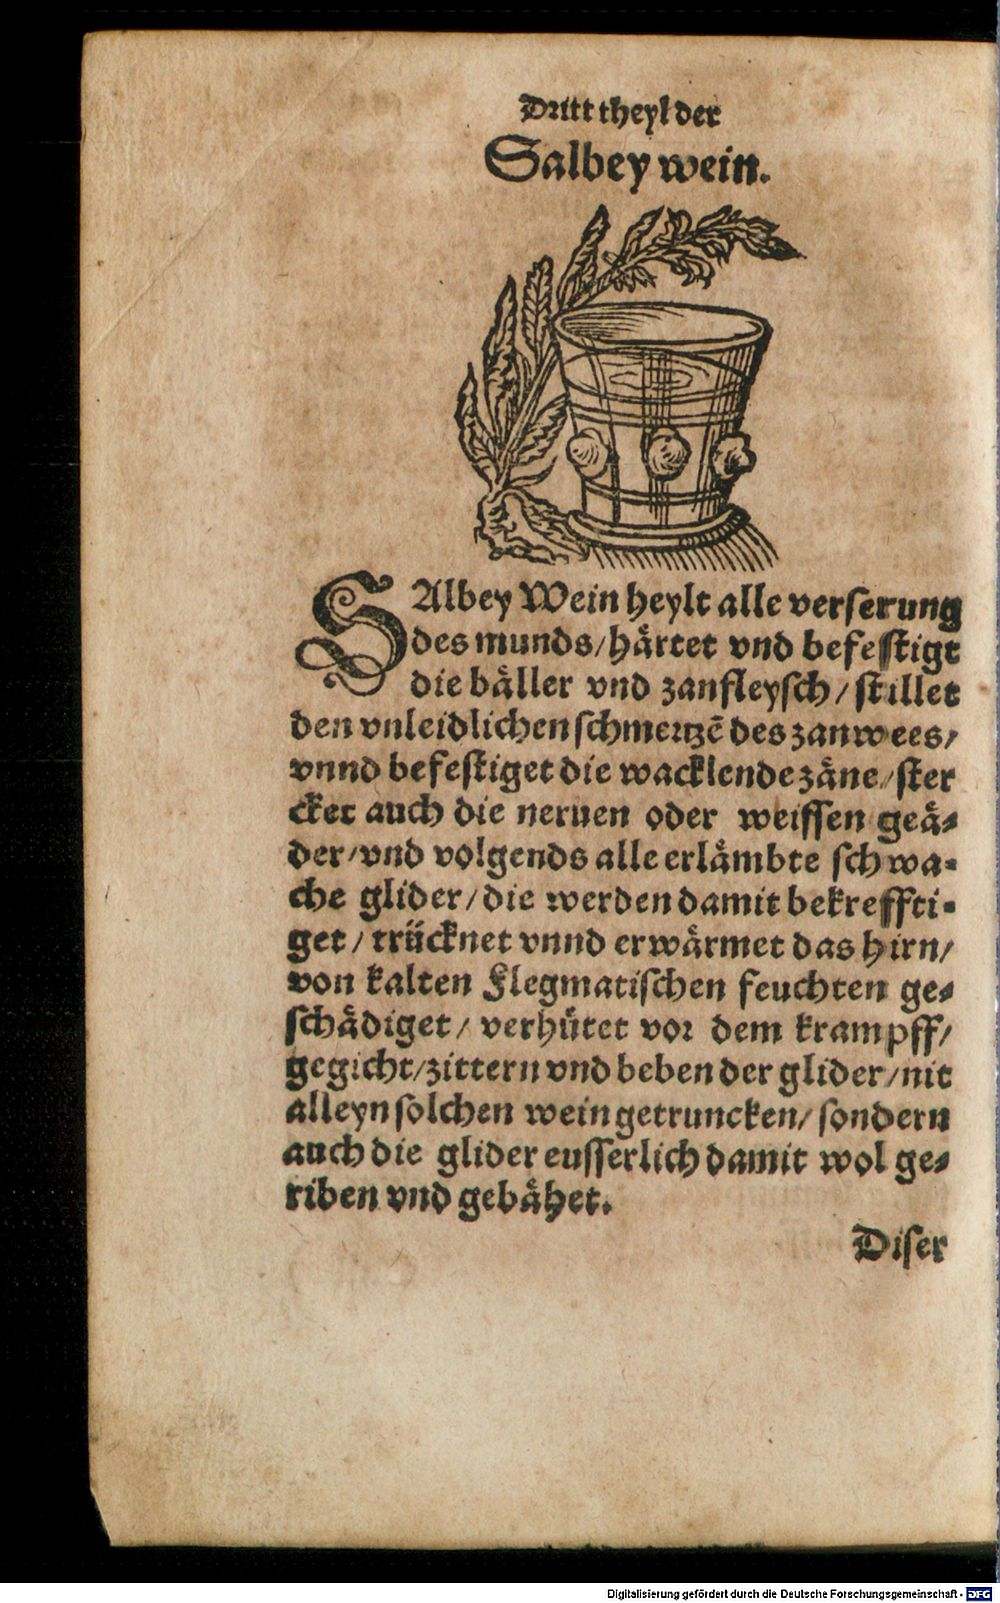 Dritt theyl der
Salbey wein.
SAlbey Wein heylt alle verserung
des munds/ härtet vnd befestigt
die bäller vnd zanfleysch/ stillet
den vnleidlichen schmertzē des zanwees/
vnnd befestiget die wacklende zäne/ ster
cket auch die neruen oder weissen geä-
der/ vnd volgends alle erlämbte schwa-
che glider/ die werden damit bekreffti-
get/ trücknet vnnd erwärmet das hirn/
von kalten Flegmatischen feuchten ge-
schädiget/ verhütet vor dem krampff/
gegicht/ zittern vnd beben der glider/ nit
alleyn solchen wein getruncken/ sondern
auch die glider eusserlich damit wol ge-
riben vnd gebähet.
Diser
Digitalisierung gefördert durch die Deutsche Forschungsgemeinschaft - DFG